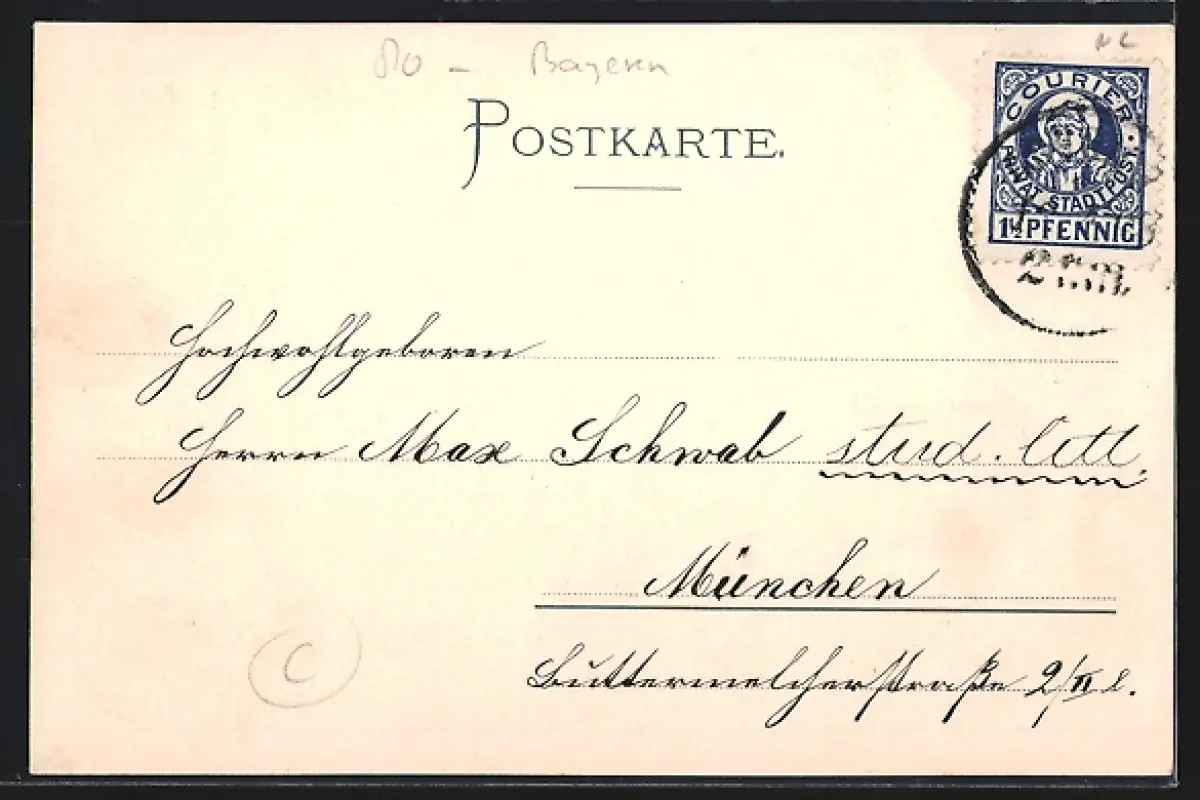 80 - Bayern
POSTKARTE.
COURIER
PRIVAT STADTPOST.
1½ PFENNIG
Hochwohlgeboren
Herrn Max Schwab stud. litt.
München
Buttermelcherstraße 2/II l.
C